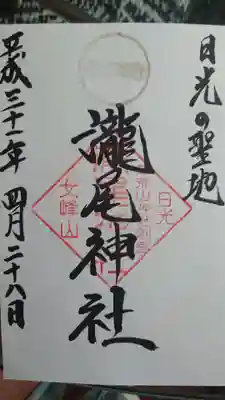 日光の聖地
瀧尾神社
平成三十一年 四月二十八日
日光
女峰山